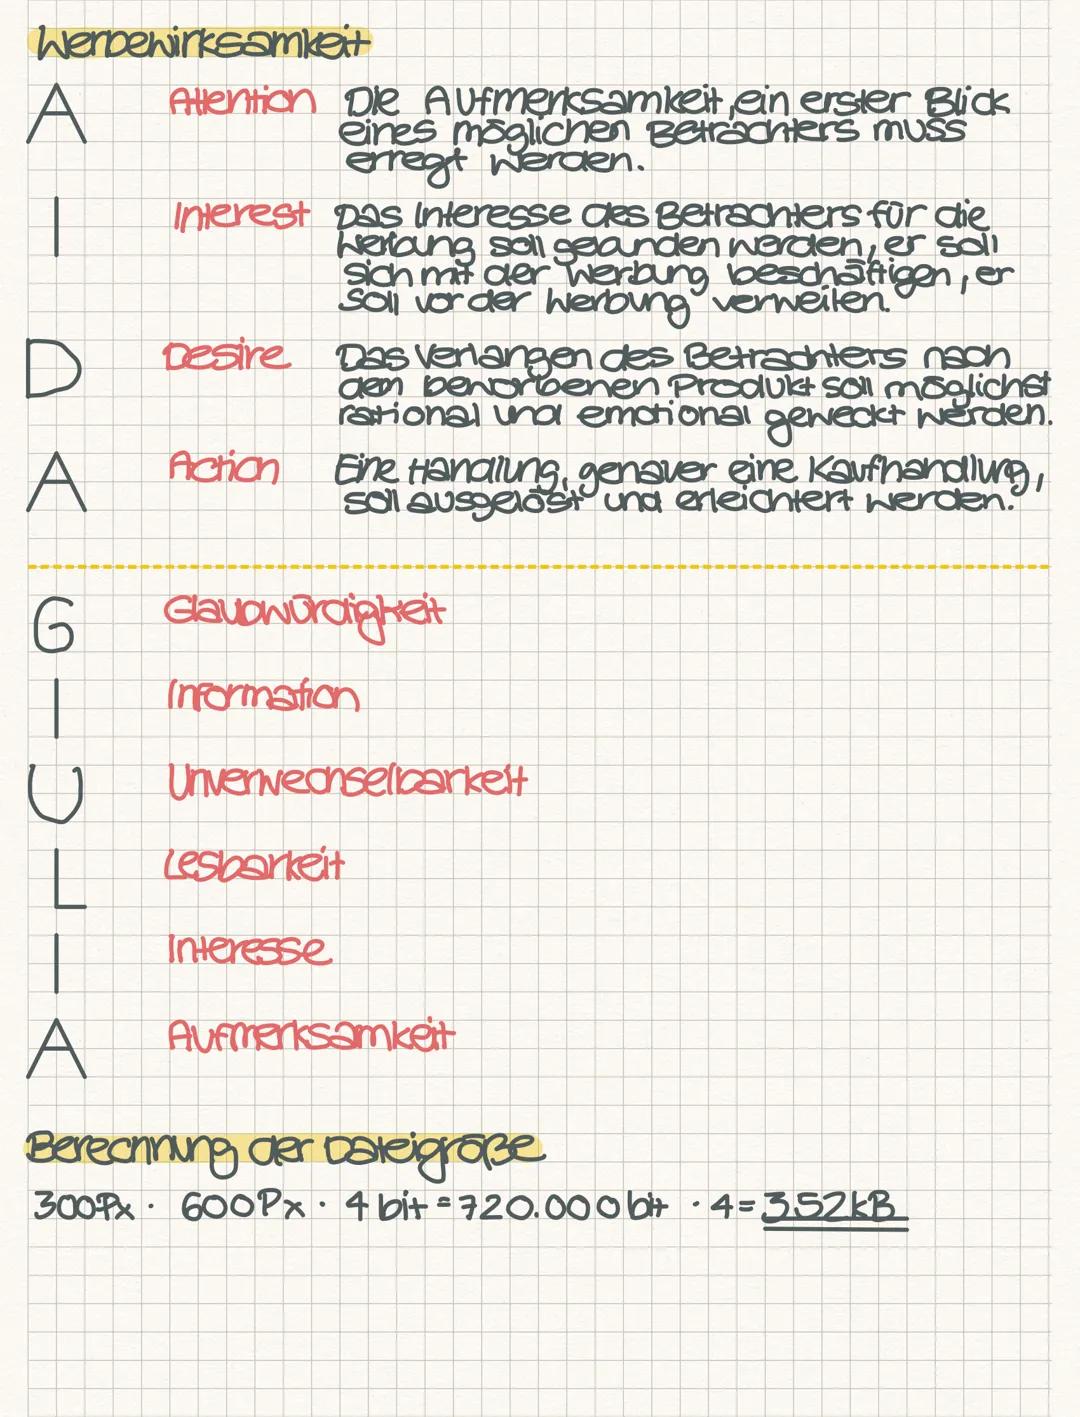 Werbewirksamkeit
A Attention Die Aufmerksamkeit, ein erster Blick
eines möglichen Betrachters muss
erregt werden.
I Interest Das Interesse des Betrachters für die
Werbung soll gebunden werden, er soll
sich mit der Werbung beschäftigen, er
soll vor der Werbung verweilen.
D Desire Das Verlangen des Betrachters nach
dem beworbenen Produkt soll möglichst
rational und emotional geweckt werden.
A Action Eine Handlung, genauer eine Kaufhandlung,
soll ausgelöst und erleichtert werden.
G Glaubwürdigkeit
I Information
U Unverwechselbarkeit
L Lesbarkeit
I Interesse
A Aufmerksamkeit
Berechnung der Dateigröße
300Px · 600Px · 4 bit = 720.000 bit · 4 = 3,52kB